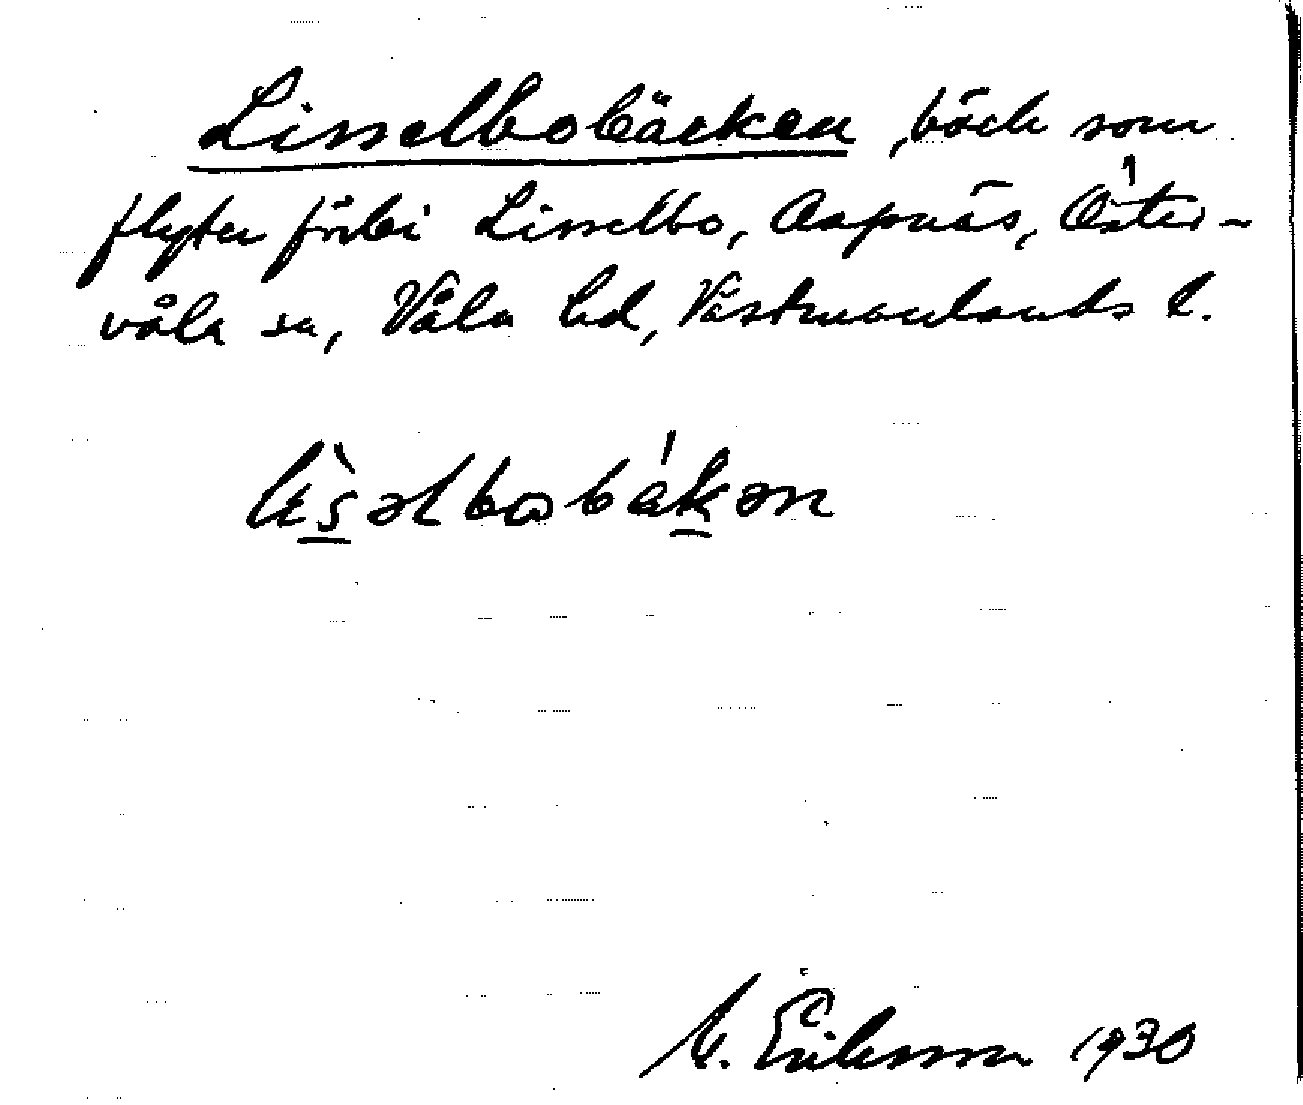 Lisselbobäcken, bäck som
flyter förbi Lisselbo, Aspnäs, Öster-
våla sn, Våla hd, Västmanlands l.
lìsəlbobǽkən
M. Eriksson 1930